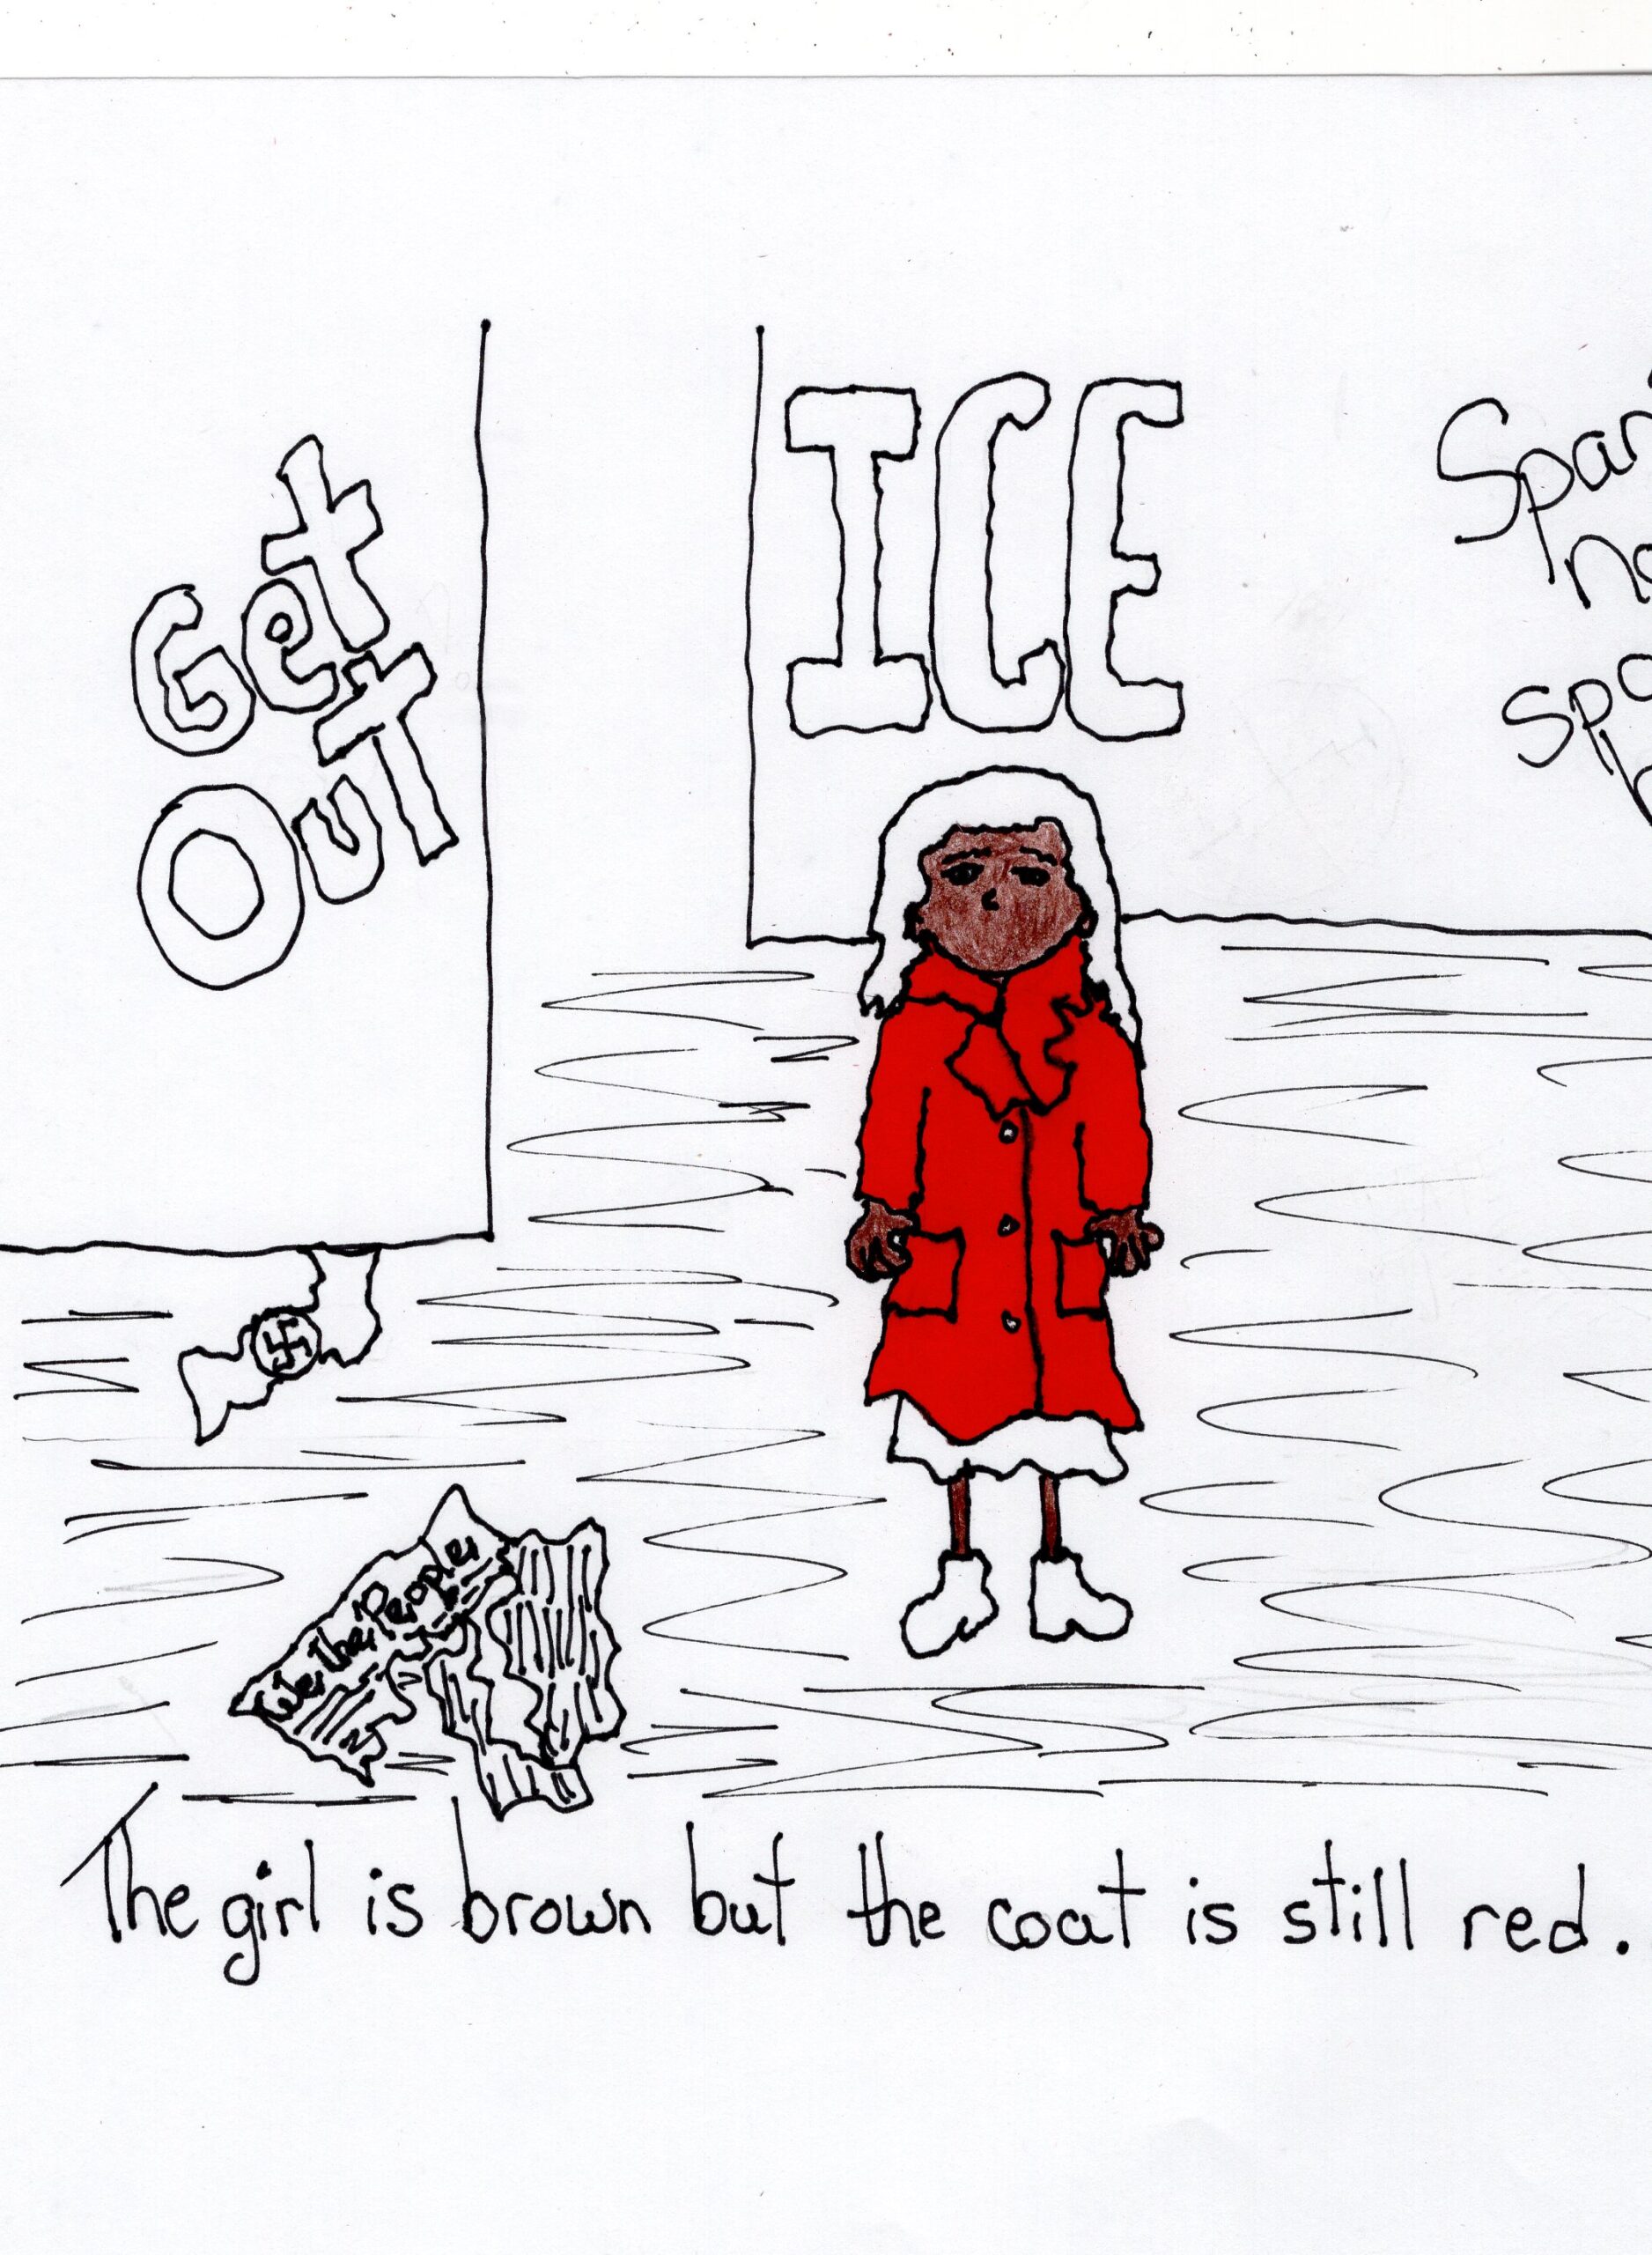 Get
Out
ICE
We The People
The girl is brown but the coat is still red.